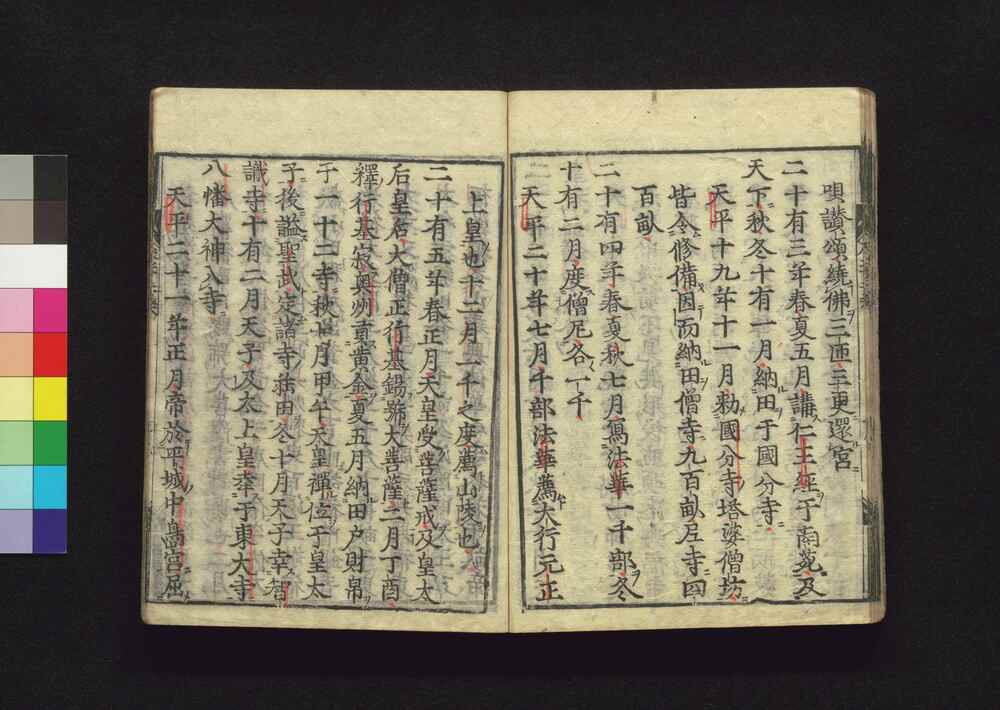 唄讃頌繞佛三匝三更還宮
二十有三年春夏五月講仁王經于南菀及
天下秋冬十有一月納田于國分寺
天平十九年十一月勅國分寺塔婆僧坊
皆令修備因而納田僧寺九百畝尼寺四
百畝
二十有四年春夏秋七月寫法華一千部冬
十有二月度僧尼各一千
天平二十年七月千部法華薦大行元正
上皇也十二月一千之度薦山陵也
二十有五年春正月天皇受菩薩戒及皇太
后皇后大僧正行基錫號大菩薩二月丁酉
釋行基寂奥州貢黄金夏五月納田戸財帛
于一十二寺秋七月甲午天皇禪位于皇太
子後謚聖武定諸寺莊田冬十月天子幸智
識寺十有二月天子及太上皇幸于東大寺
八幡大神入寺
天平二十一年正月帝於平城中嶋宮屈